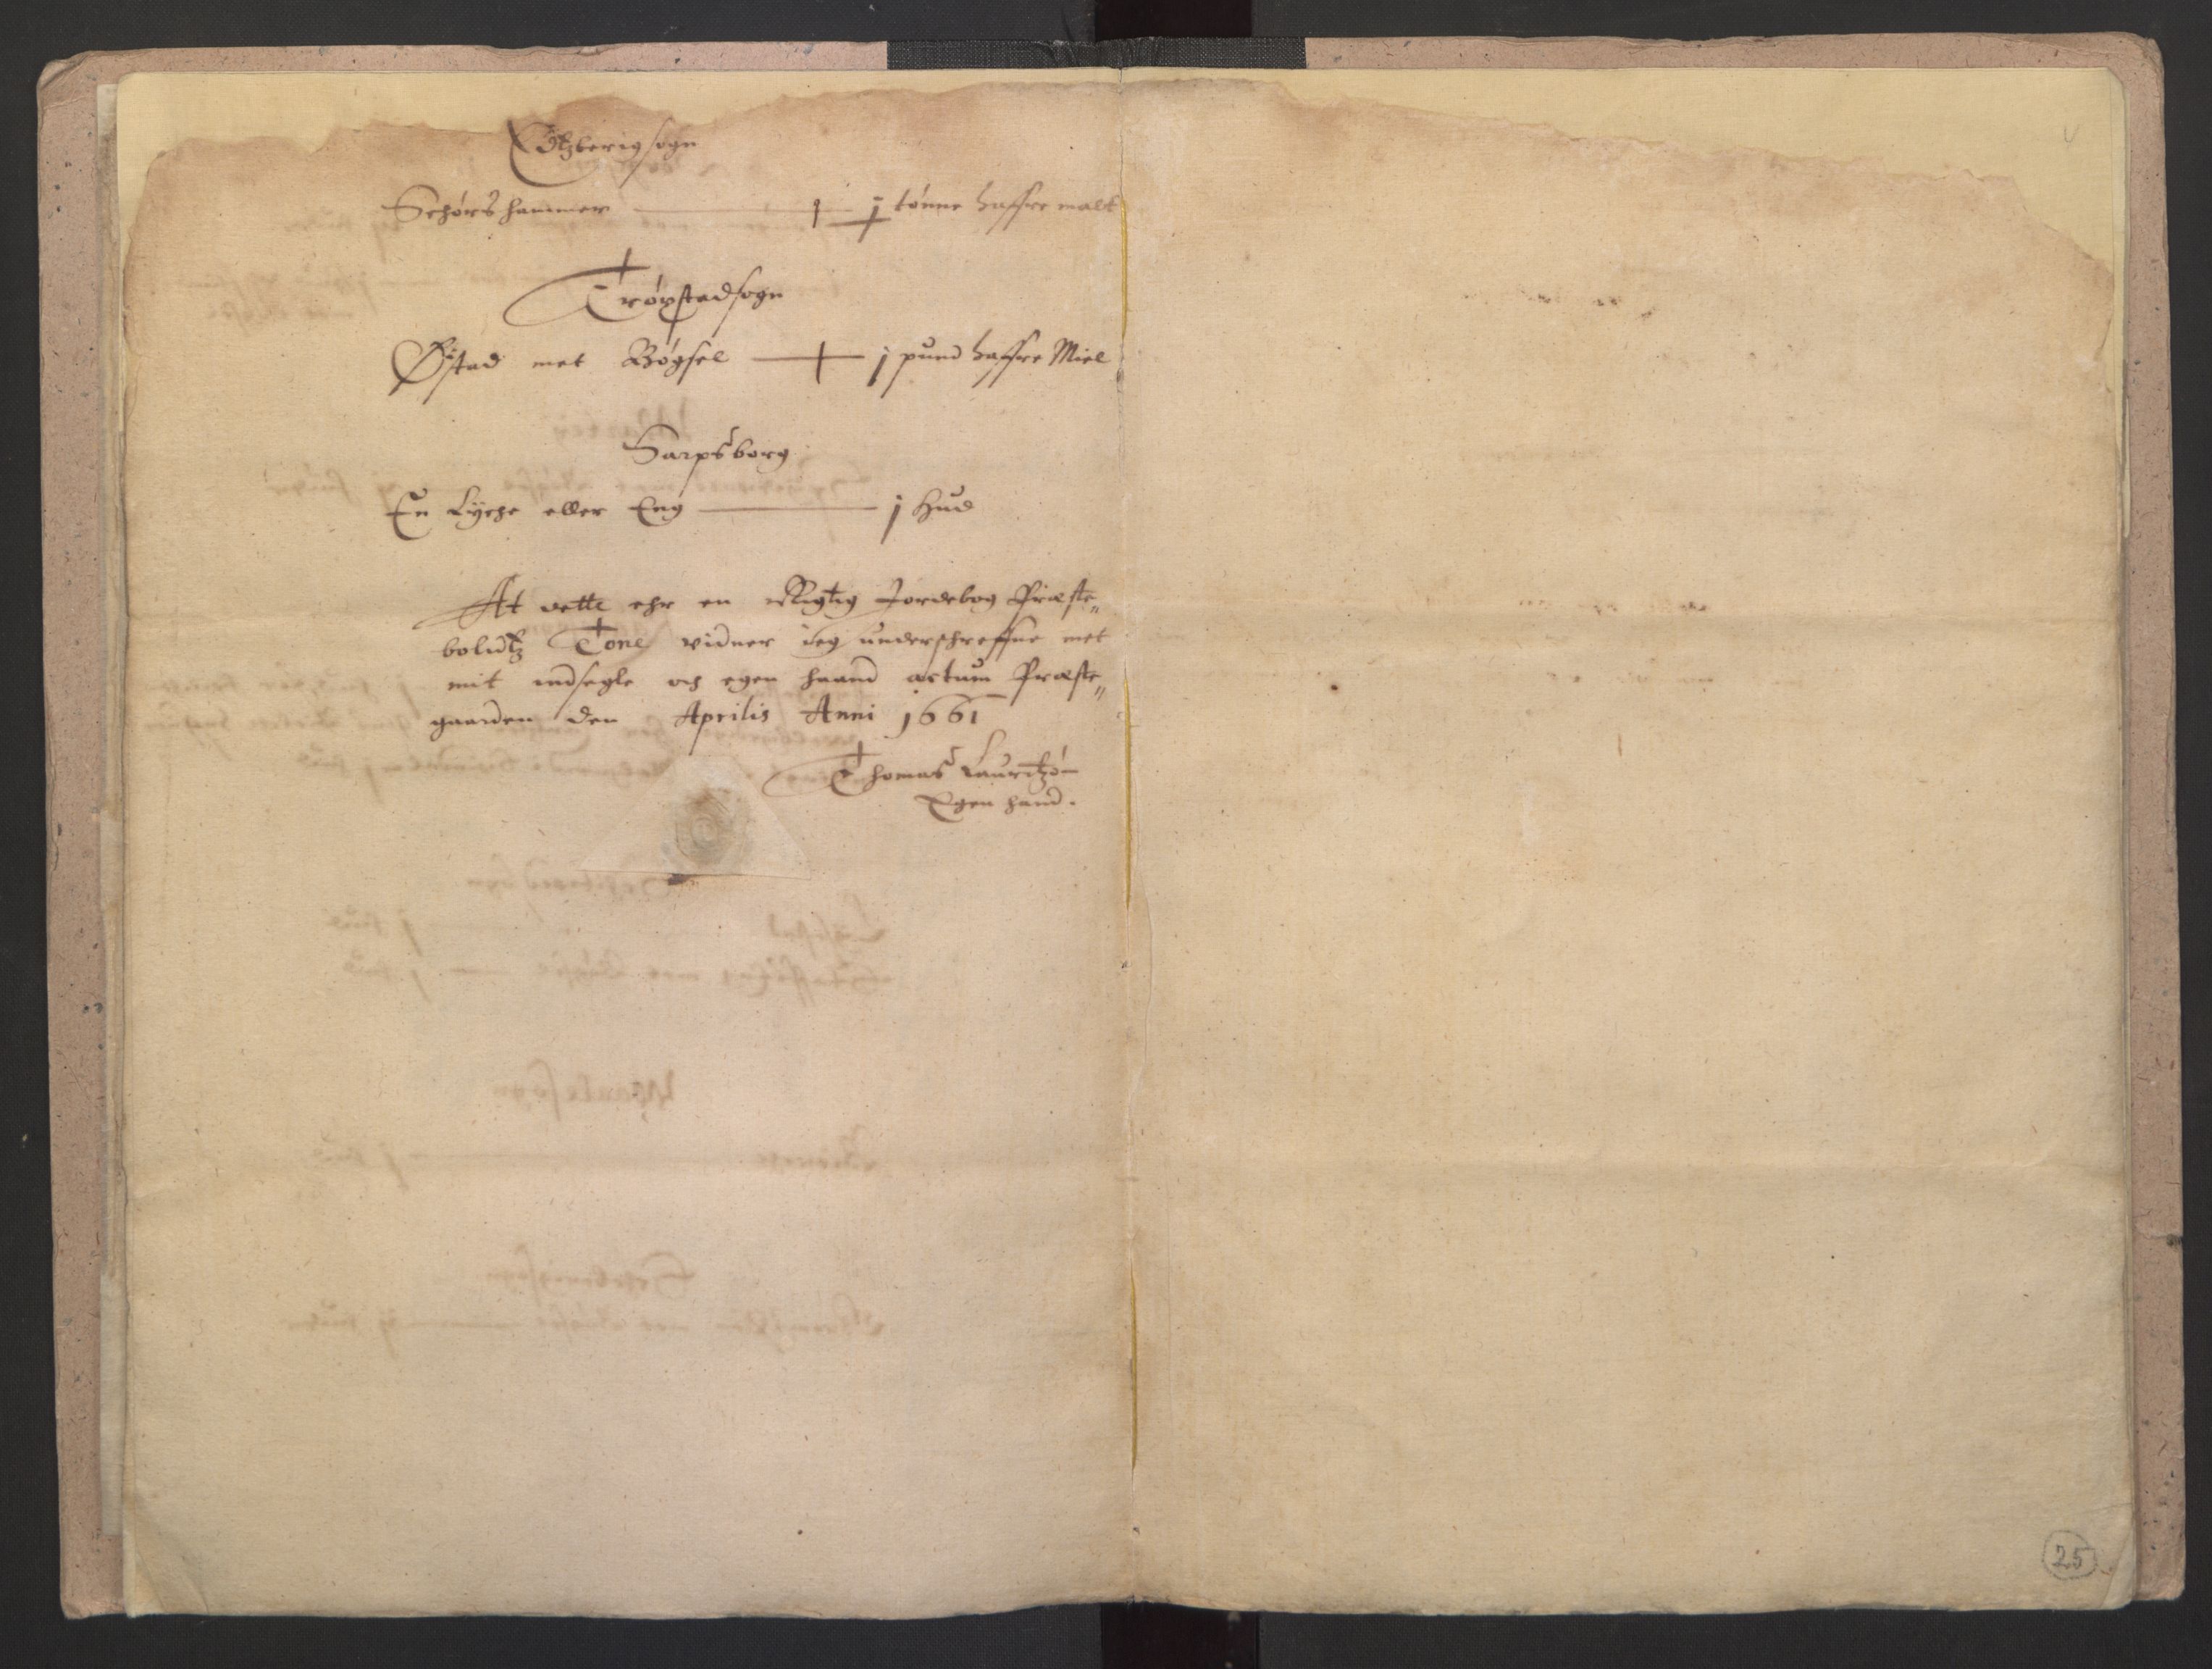 Edtzberig sogn
Schørs hammer j tønne haffre malt
Trøgstad sogn
Østad met Bøgsel j pund haffre Miel
Sarpsborg
En Lyche eller Eng j Hud
At dette ehr en Rigtig Jordebog Præste„
bolidtz Tone vidner ieg underschreffne met
mit indsegle och egen haand actum Præste„
gaarden den Aprilis Anni 1661
Thomas Lauritzøn
Egen hand.
25